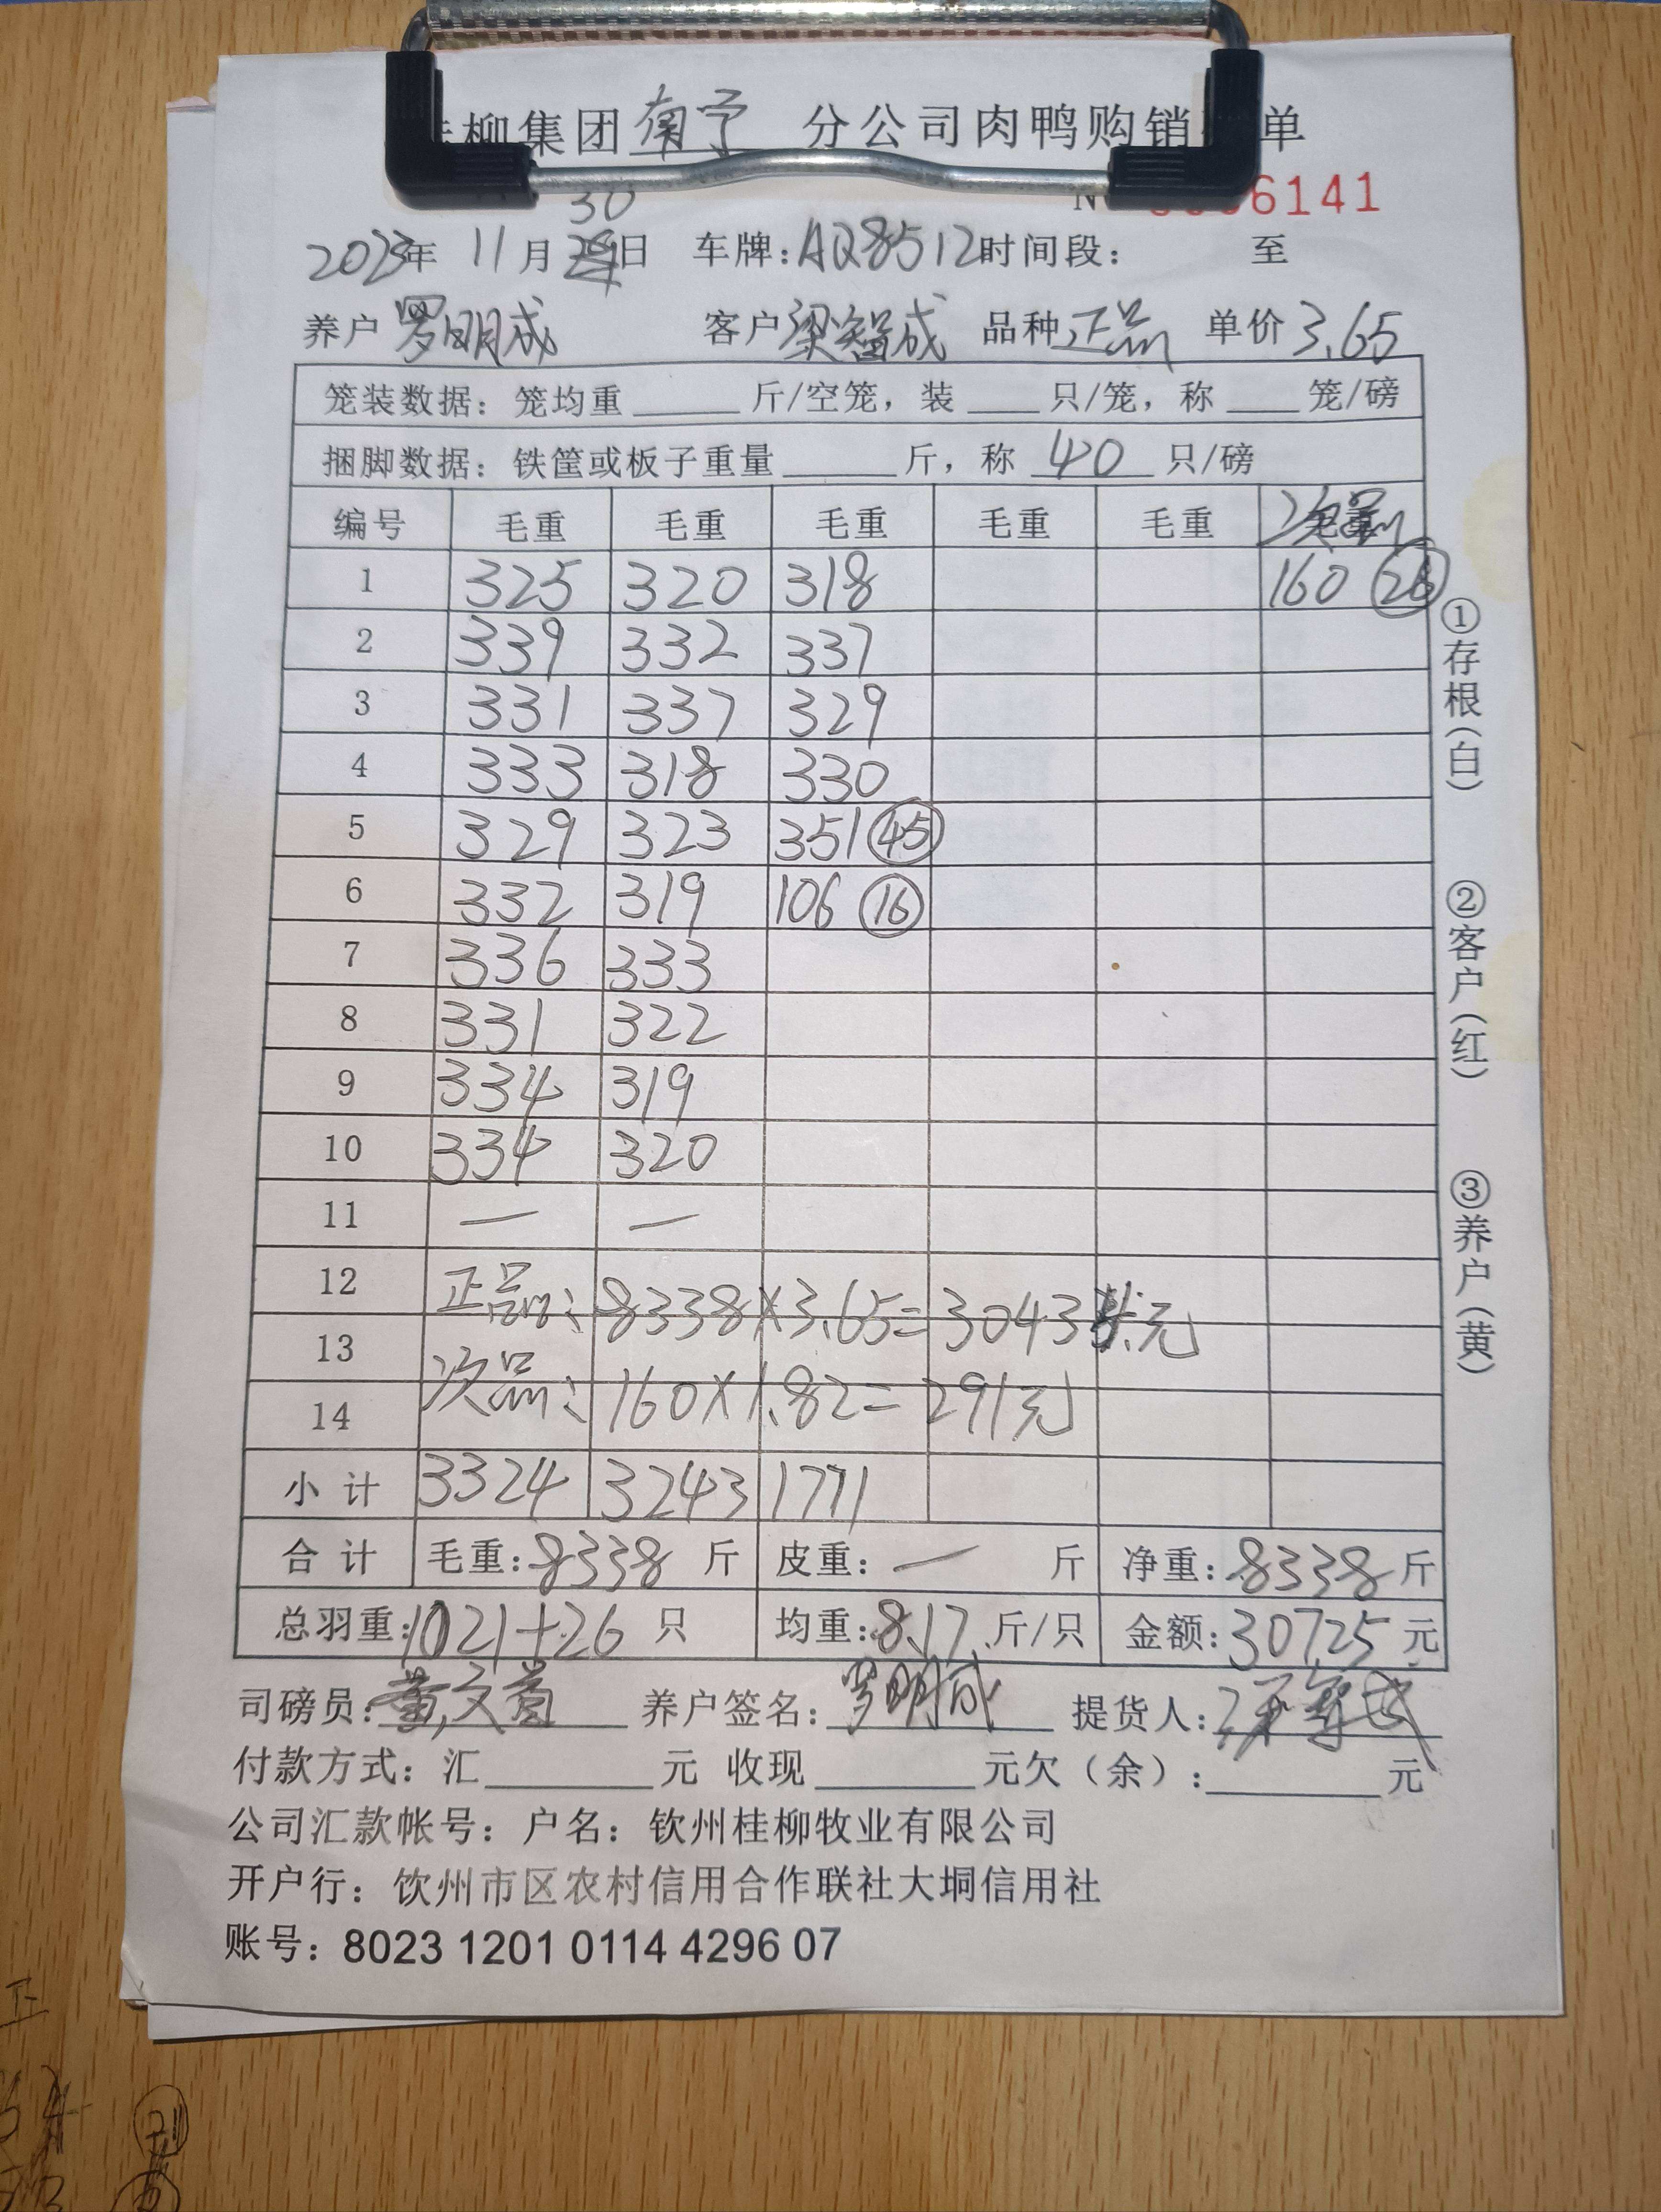 柳集团南宁 分公司肉鸭购销 单
6141
30
2023年 11月 日 车牌:AQ8512 时间段: 至
养户 罗明成 客户 梁智成 品种 正品 单价 3.65
笼装数据: 笼均重 斤/空笼, 装 只/笼, 称 笼/磅
捆脚数据: 铁筐或板子重量 斤, 称 40 只/磅
编号 毛重 毛重 毛重 毛重 毛重 次品
1 325 320 318 160 26
2 339 332 337
3 331 337 329
4 333 318 330
5 329 323 351 45
6 332 319 106 16
7 336 333
8 331 322
9 334 319
10 334 320
11 — —
12 正品: 8338×3.65=30434元
13 次品: 160×1.82=291元
14
小计 3324 3243 1771
合计 毛重: 8338 斤 皮重: — 斤 净重: 8338 斤
总羽重: 1021+26 只 均重: 8.17 斤/只 金额: 30725 元
司磅员: 黄文 养户签名: 罗明成 提货人:
付款方式: 汇 元 收现 元欠(余): 元
公司汇款帐号: 户名: 钦州桂柳牧业有限公司
开户行: 饮州市区农村信用合作联社大垌信用社
账号: 8023 1201 0114 4296 07
①存根(白)
②客户(红)
③养户(黄)